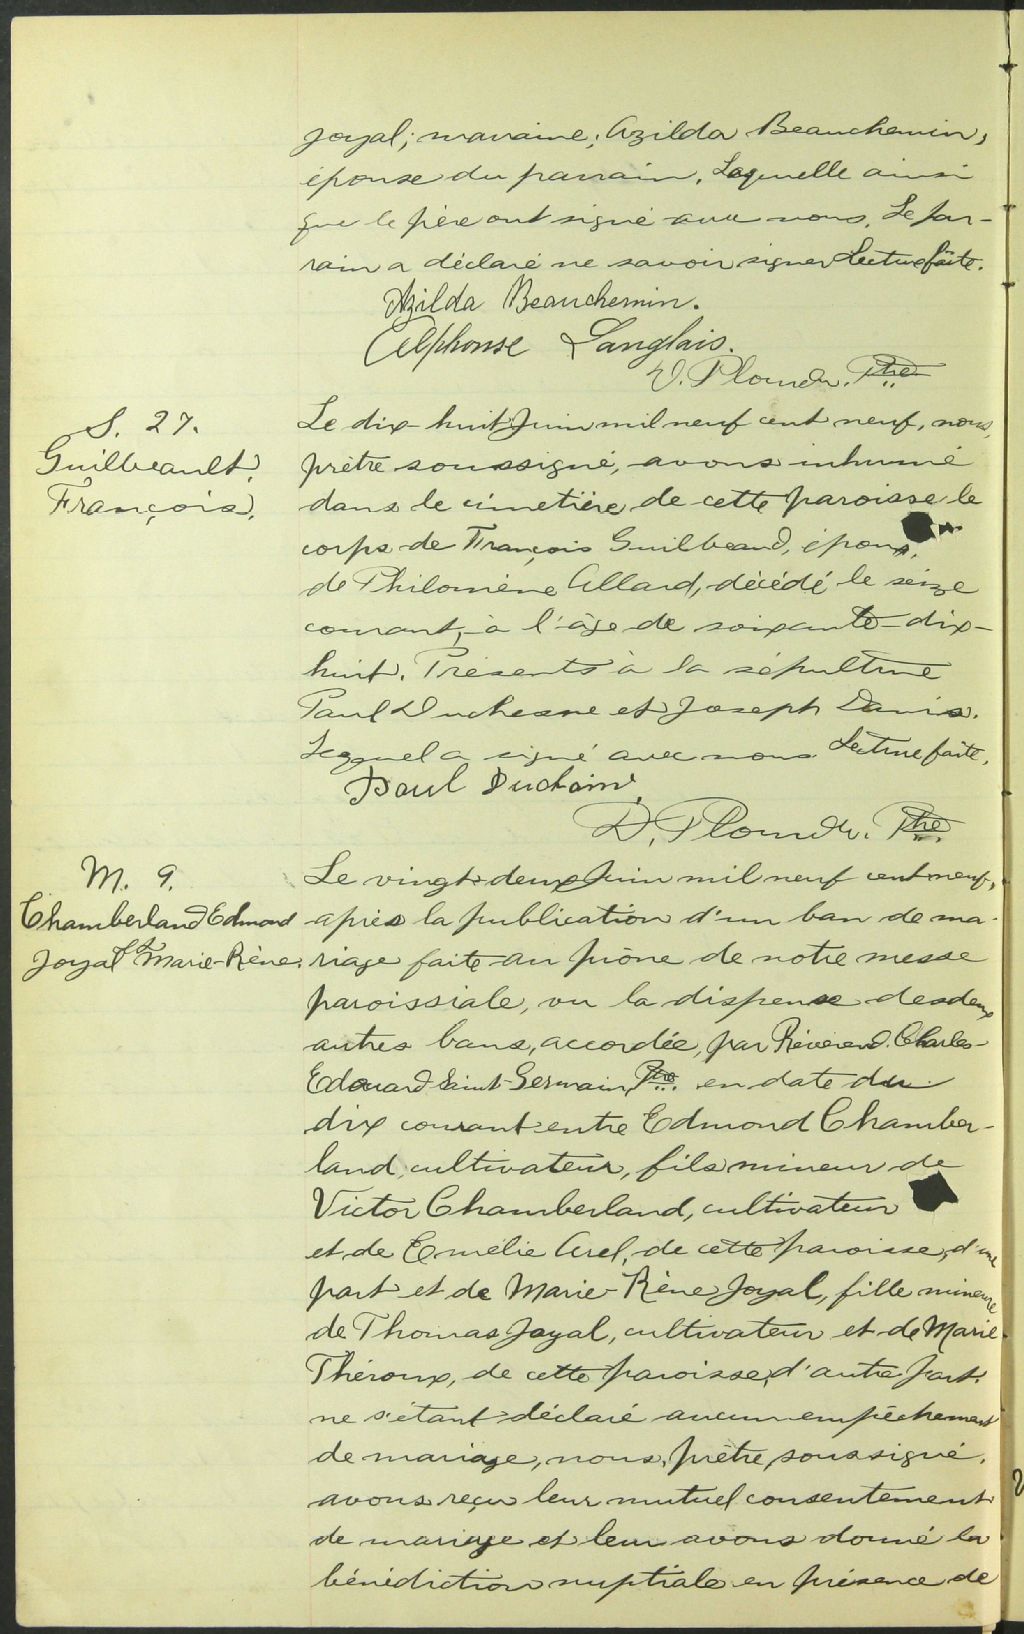 Joyal; marraine, Azilda Beauchemin,
épouse du parrain, Laquelle ainsi
que le père ont signé avec nous. Le par-
rain a déclaré ne savoir signer Lecture faite.
Azilda Beauchemin.
Alphonse Langlais.
D. Plourde. Ptre
S. 27.
Guilbeault,
François.
Le dix-huit Juin mil neuf cent neuf, nous,
prêtre soussigné, avons inhumé
dans le cimetière de cette paroisse le
corps de François Guilbeaud, époux,
de Philomène Allard, décédé le seize
courant, à l'âge de soixante-dix-
huit. Présents à la sépulture
Paul Duchesne et Joseph Davis.
Lequel a signé avec nous Lecture faite.
Paul Duchaine
D. Plourde. Ptre
M. 9.
Chamberland Edmond
et
Joyal Marie-Rène.
Le vingt-deux Juin mil neuf cent neuf,
après la publication d'un ban de ma-
riage faite au prône de notre messe
paroissiale, vu la dispense des deux
autres bans, accordée, par Révérend Charles-
Edouard Saint-Germain, Ptre en date du
dix courant entre Edmond Chamber-
land, cultivateur, fils mineur de
Victor Chamberland, cultivateur
et de Emélie Arel, de cette paroisse, d'une
part et de Marie-Rène Joyal, fille mineure
de Thomas Joyal, cultivateur et de Marie
Théroux, de cette paroisse, d'autre part.
ne s'étant déclaré aucun empêchement
de mariage, nous, prêtre, soussigné,
avons reçu leur mutuel consentement
de mariage et leur avons donné la
bénédiction nuptiale en présence de